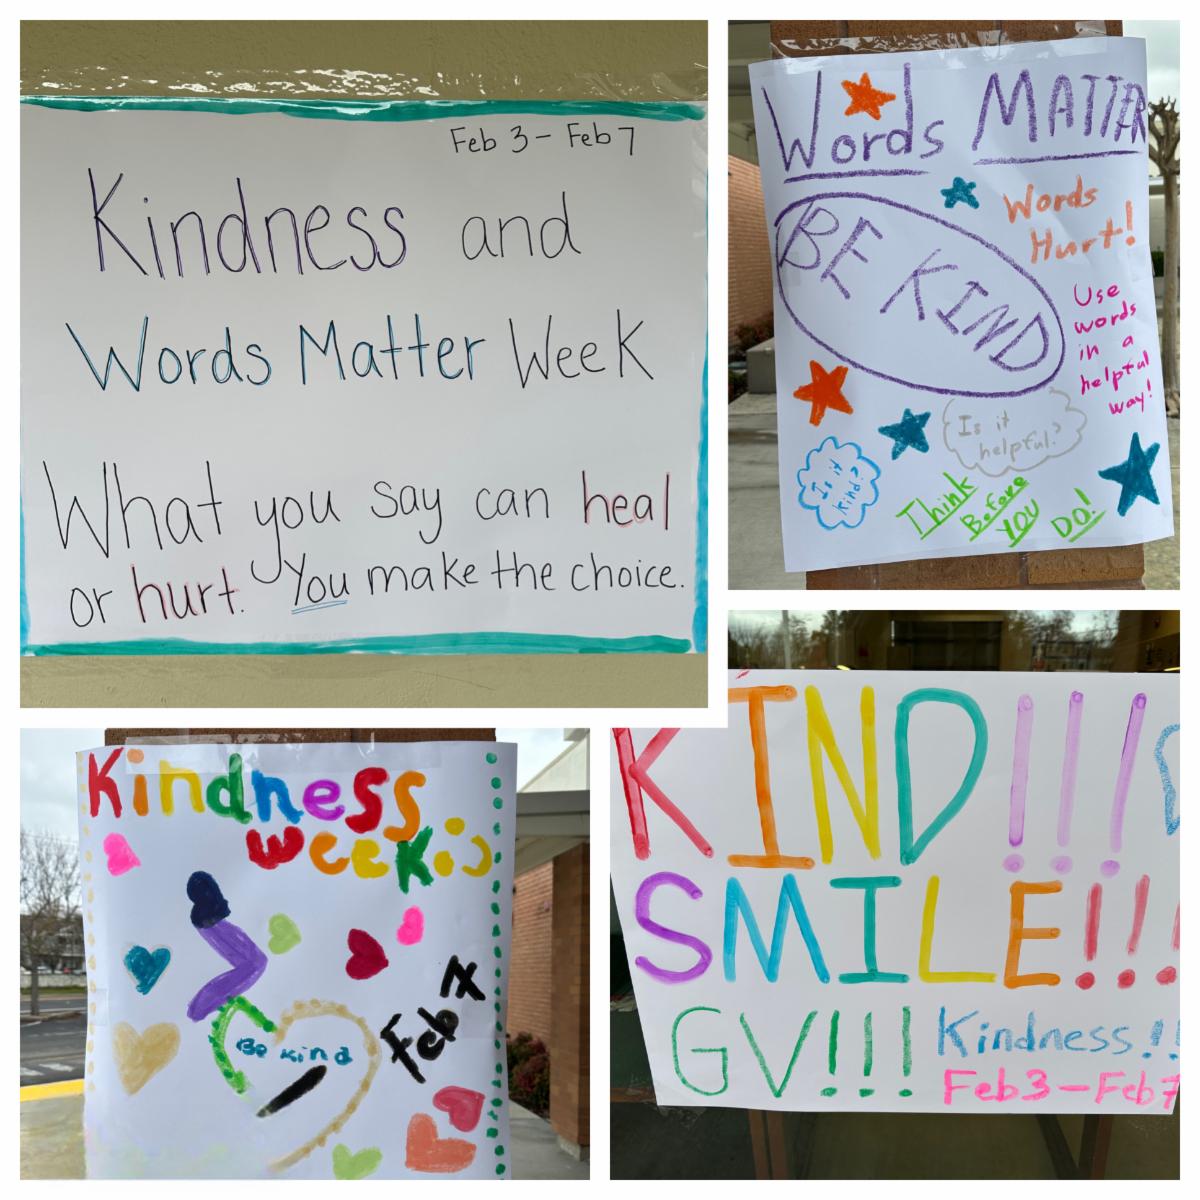 Feb 3 - Feb 7
Kindness and
Words Matter Week
What you say can heal
or hurt. You make the choice.
Words MATTER
BE KIND
Words
Hurt!
Use
words
in a
helpful
way!
Is it
helpful?
Is it
kind?
Think
Before
YOU
DO!
Kindness
week:)
Be kind
Feb 7
KIND!!!
SMILE!!!
GV!!!
Kindness!!
Feb 3 - Feb 7